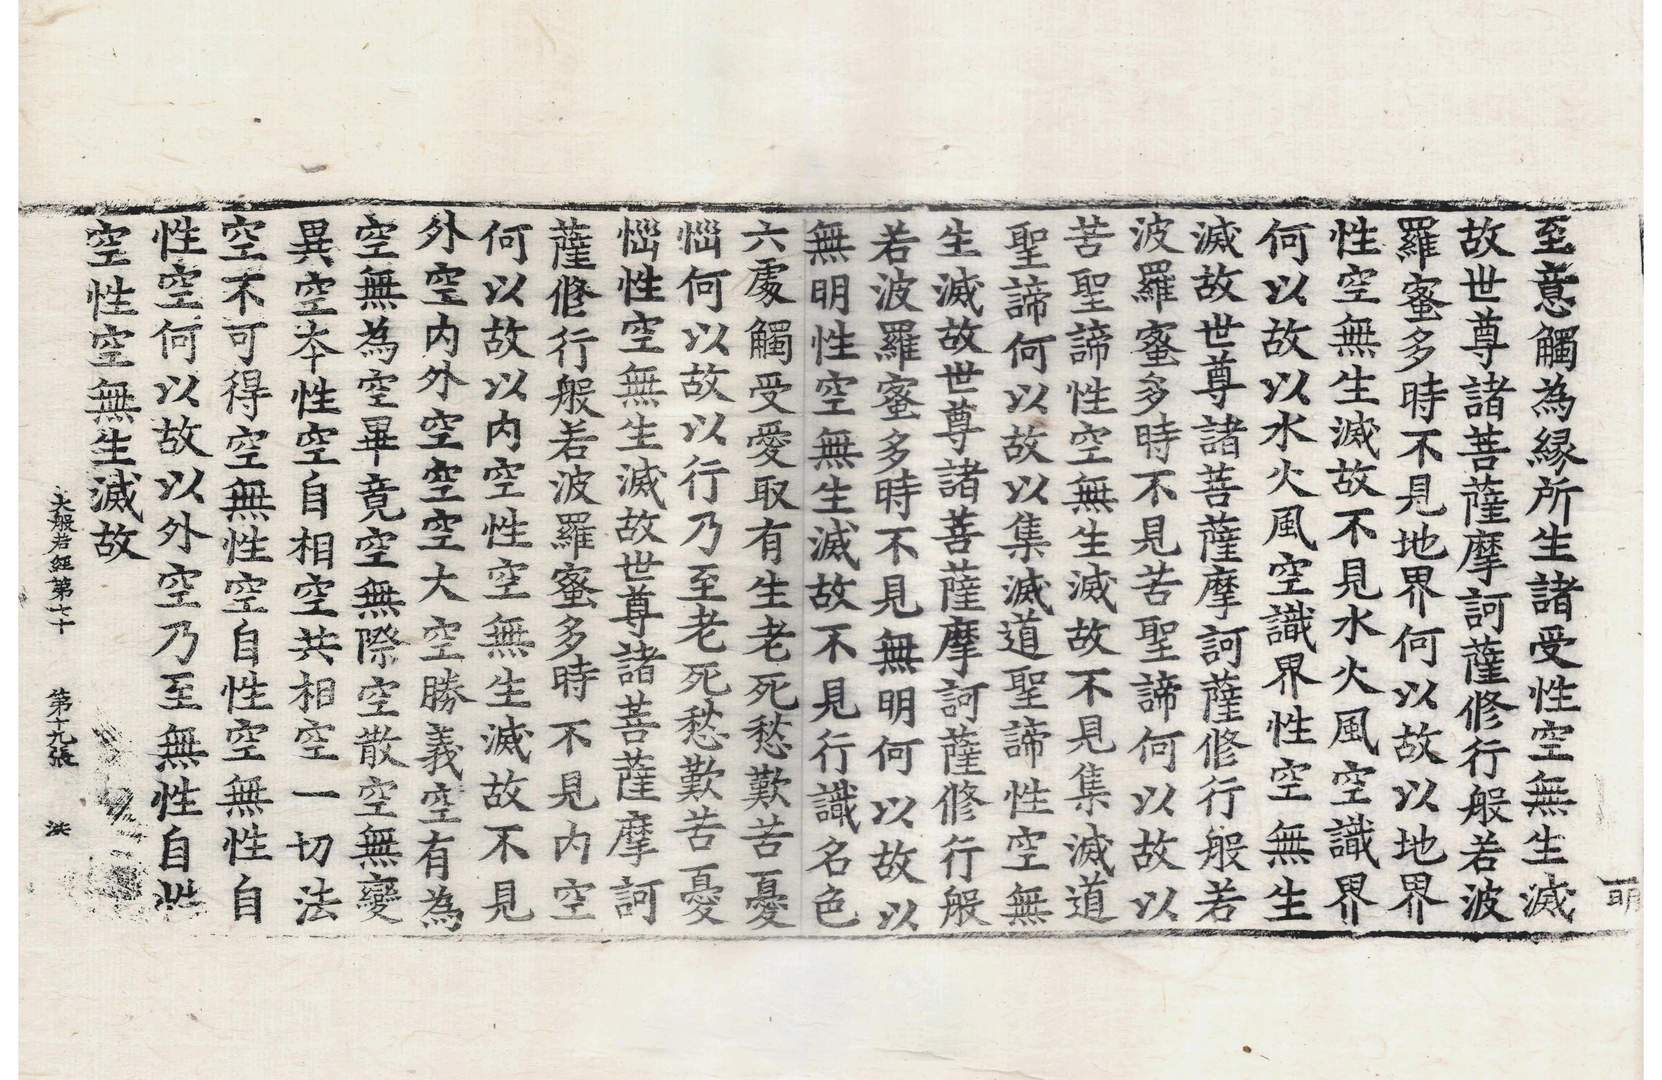 至意觸為緣所生諸受性空無生滅
故世尊諸菩薩摩訶薩修行般若波
羅蜜多時不見地界何以故以地界
性空無生滅故不見水火風空識界
何以故以水火風空識界性空無生
滅故世尊諸菩薩摩訶薩修行般若
波羅蜜多時不見苦聖諦何以故以
苦聖諦性空無生滅故不見集滅道
聖諦何以故以集滅道聖諦性空無
生滅故世尊諸菩薩摩訶薩修行般
若波羅蜜多時不見無明何以故以
無明性空無生滅故不見行識名色
六處觸受愛取有生老死愁歎苦憂
惱何以故以行乃至老死愁歎苦憂
惱性空無生滅故世尊諸菩薩摩訶
薩修行般若波羅蜜多時不見內空
何以故以內空性空無生滅故不見
外空內外空空空大空勝義空有為
空無為空畢竟空無際空散空無變
異空本性空自相空共相空一切法
空不可得空無性空自性空無性自
性空何以故以外空乃至無性自性
空性空無生滅故
大般若經第七十 第十九張 洪